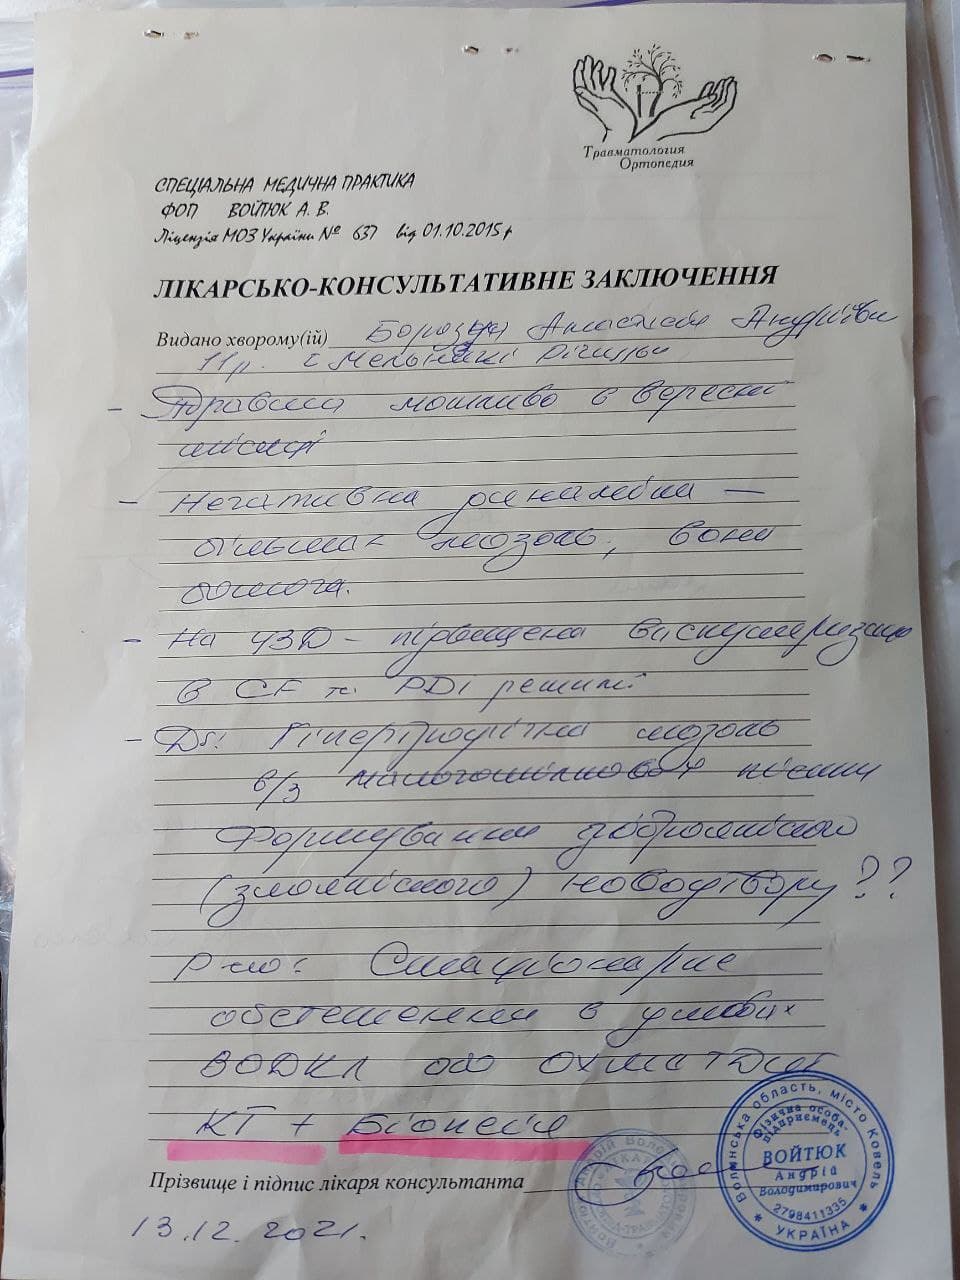 Травматология
Ортопедия
СПЕЦІАЛЬНА МЕДИЧНА ПРАКТИКА
ФОП ВОЙТЮК А. В.
Ліцензія МОЗ України № 637 від 01.10.2015 р
ЛІКАРСЬКО-КОНСУЛЬТАТИВНЕ ЗАКЛЮЧЕННЯ
Видано хворому(ій) Анастасія Андріївн
11р. с
- Травма можливо в вересні
місяці
- Негативна динаміка —
більша мозоль,
- На УЗД - підвищена васкуляризація
в CF та PDI режимі
- Ds: Гіпертрофічна мозоль
в/з малогомілкової кістки
Формування доброякісного
(злоякісного) новоутвору??
Р-но: Стаціонарне
обстеження в умовах
ВОДКЛ або ОХМАТДИТ
КТ + Біопсія
Прізвище і підпис лікаря консультанта
Волинська область, місто Ковель
Фізична особа-
підприємець
ВОЙТЮК
Андрій
Володимирович
2798411335
* УКРАЇНА *
13.12.2021.